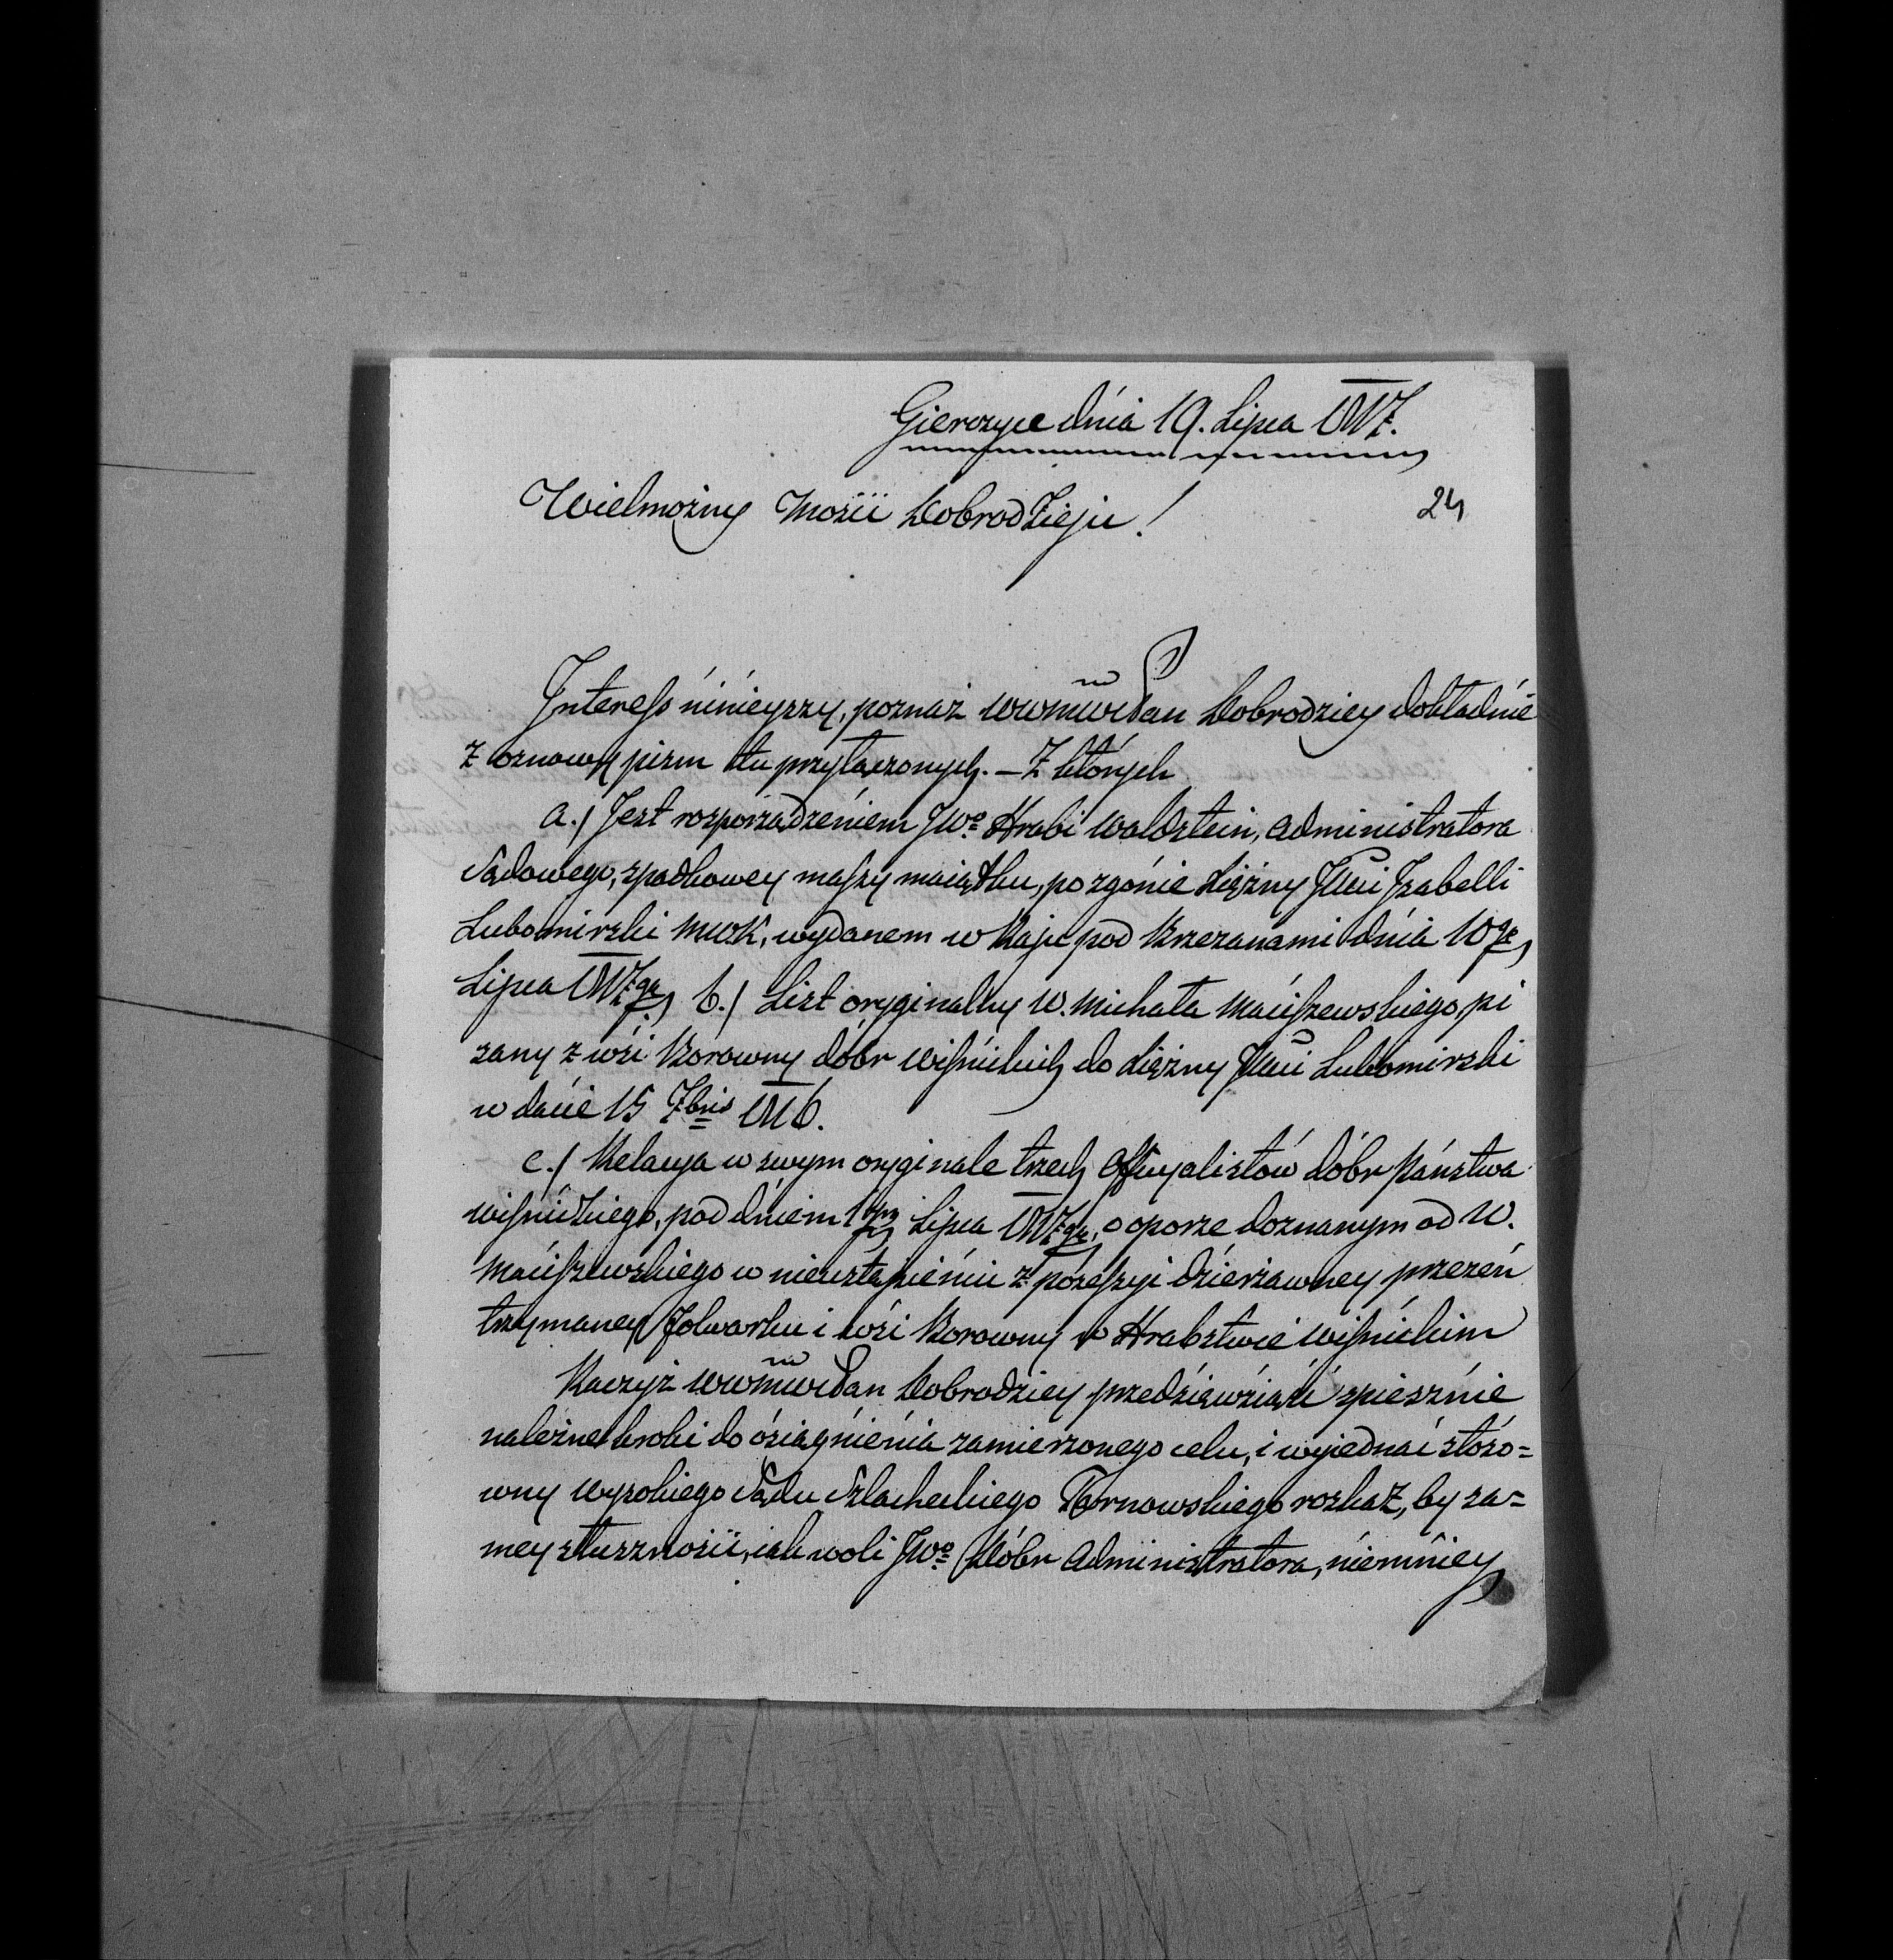 Gierczyce dnia 19. Lipca 1817.
24
Wielmożny Mości Dobrodzieju!
Interess ninieyszy, poznasz WWMWPan Dobrodziey dokładnie
z osnowy pism tu przyłączonych. — Z których
a./ Jest rozporządzeniem JWo Hrabi Waldstein, Administratora
Sądowego, spadkowey massy maiątku, po zgonie Xiężny JMci Izabelli
Lubomirski MWK, wydanem w Raju pod Brzeżanami dnia 10go
Lipca 1817go b./ List oryginalny W. Michała Maciszewskiego, pi
sany z wsi Borowny dóbr Wisnickich do Xiężny JMci Lubomirski
w dacie 15 7bris 1816.
c./ Relacya w swym oryginale trzech Officyalistów dóbr Państwa
Wisnickiego, pod dniem Lipca 1817go, o oporze doznanym od W.
Maciszewskiego w nieustąpieniu z possessyi dzierżawney przezeń
trzymaney folwarku i wsi Borowny w Hrabstwie Wisnickim
Raczysz WWMWPan Dobrodziey przedsięwziąść spiesznie
należne kroki do ósiągnienia zamierzonego celu, i wyiednać stóso=
wny Wysokiego Sądu Szlacheckiego Tarnowskiego rozkaz, by sa=
mey słuszności, iak woli JWo Dóbr Administratora, niemniey